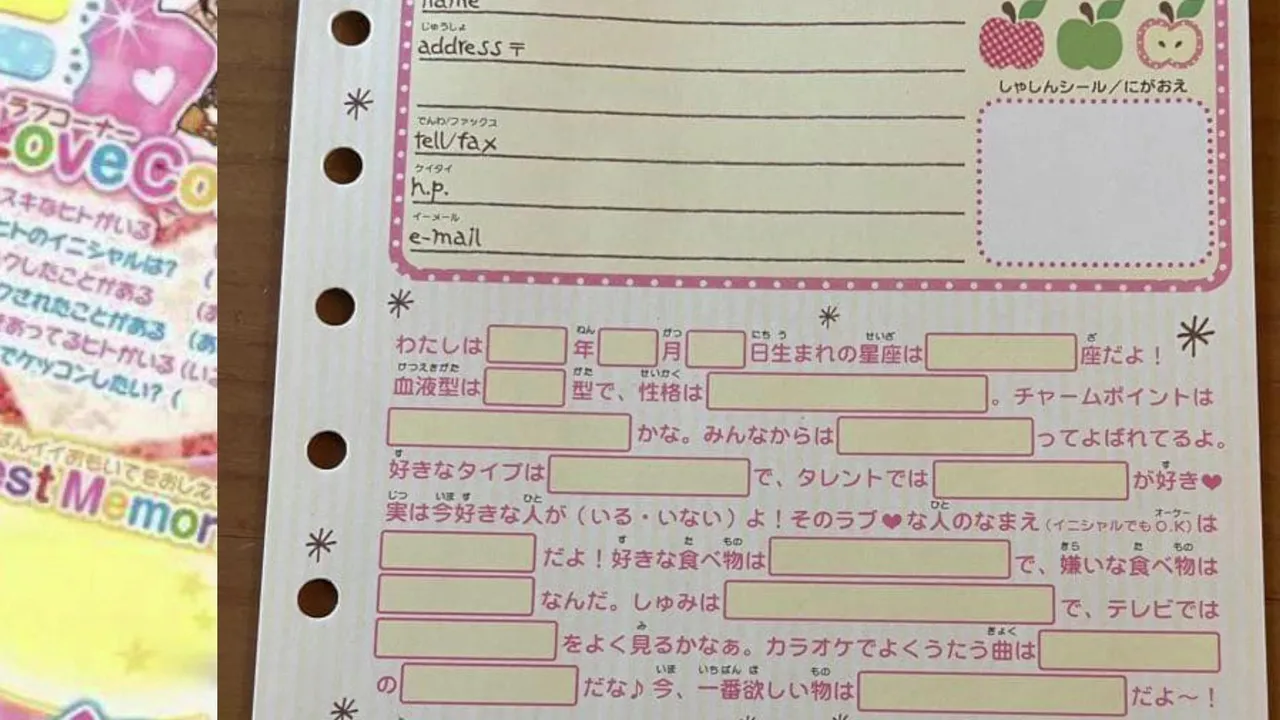 ラブコーナー
Love Co
スキなヒトがいる
ヒトのイニシャルは? (
クしたことがある (
クされたことがある (あ
あってるヒトがいる (い
でケッコンしたい? (
ばんイイおもいでをおしえ
est Memor
name
じゅうしょ
address 〒
でんわ/ファックス
tell/fax
ケイタイ
h.p.
イーメール
e-mail
しゃしんシール/にがおえ
わたしは 年 月 日生まれの星座は 座だよ!
血液型は 型で、性格は 。チャームポイントは
かな。みんなからは ってよばれてるよ。
好きなタイプは で、タレントでは が好き♥
実は今好きな人が(いる・いない)よ!そのラブ♥な人のなまえ(イニシャルでもO.K)は
だよ!好きな食べ物は で、嫌いな食べ物は
なんだ。しゅみは で、テレビでは
をよく見るかなぁ。カラオケでよくうたう曲は
の だな♪今、一番欲しい物は だよ〜!